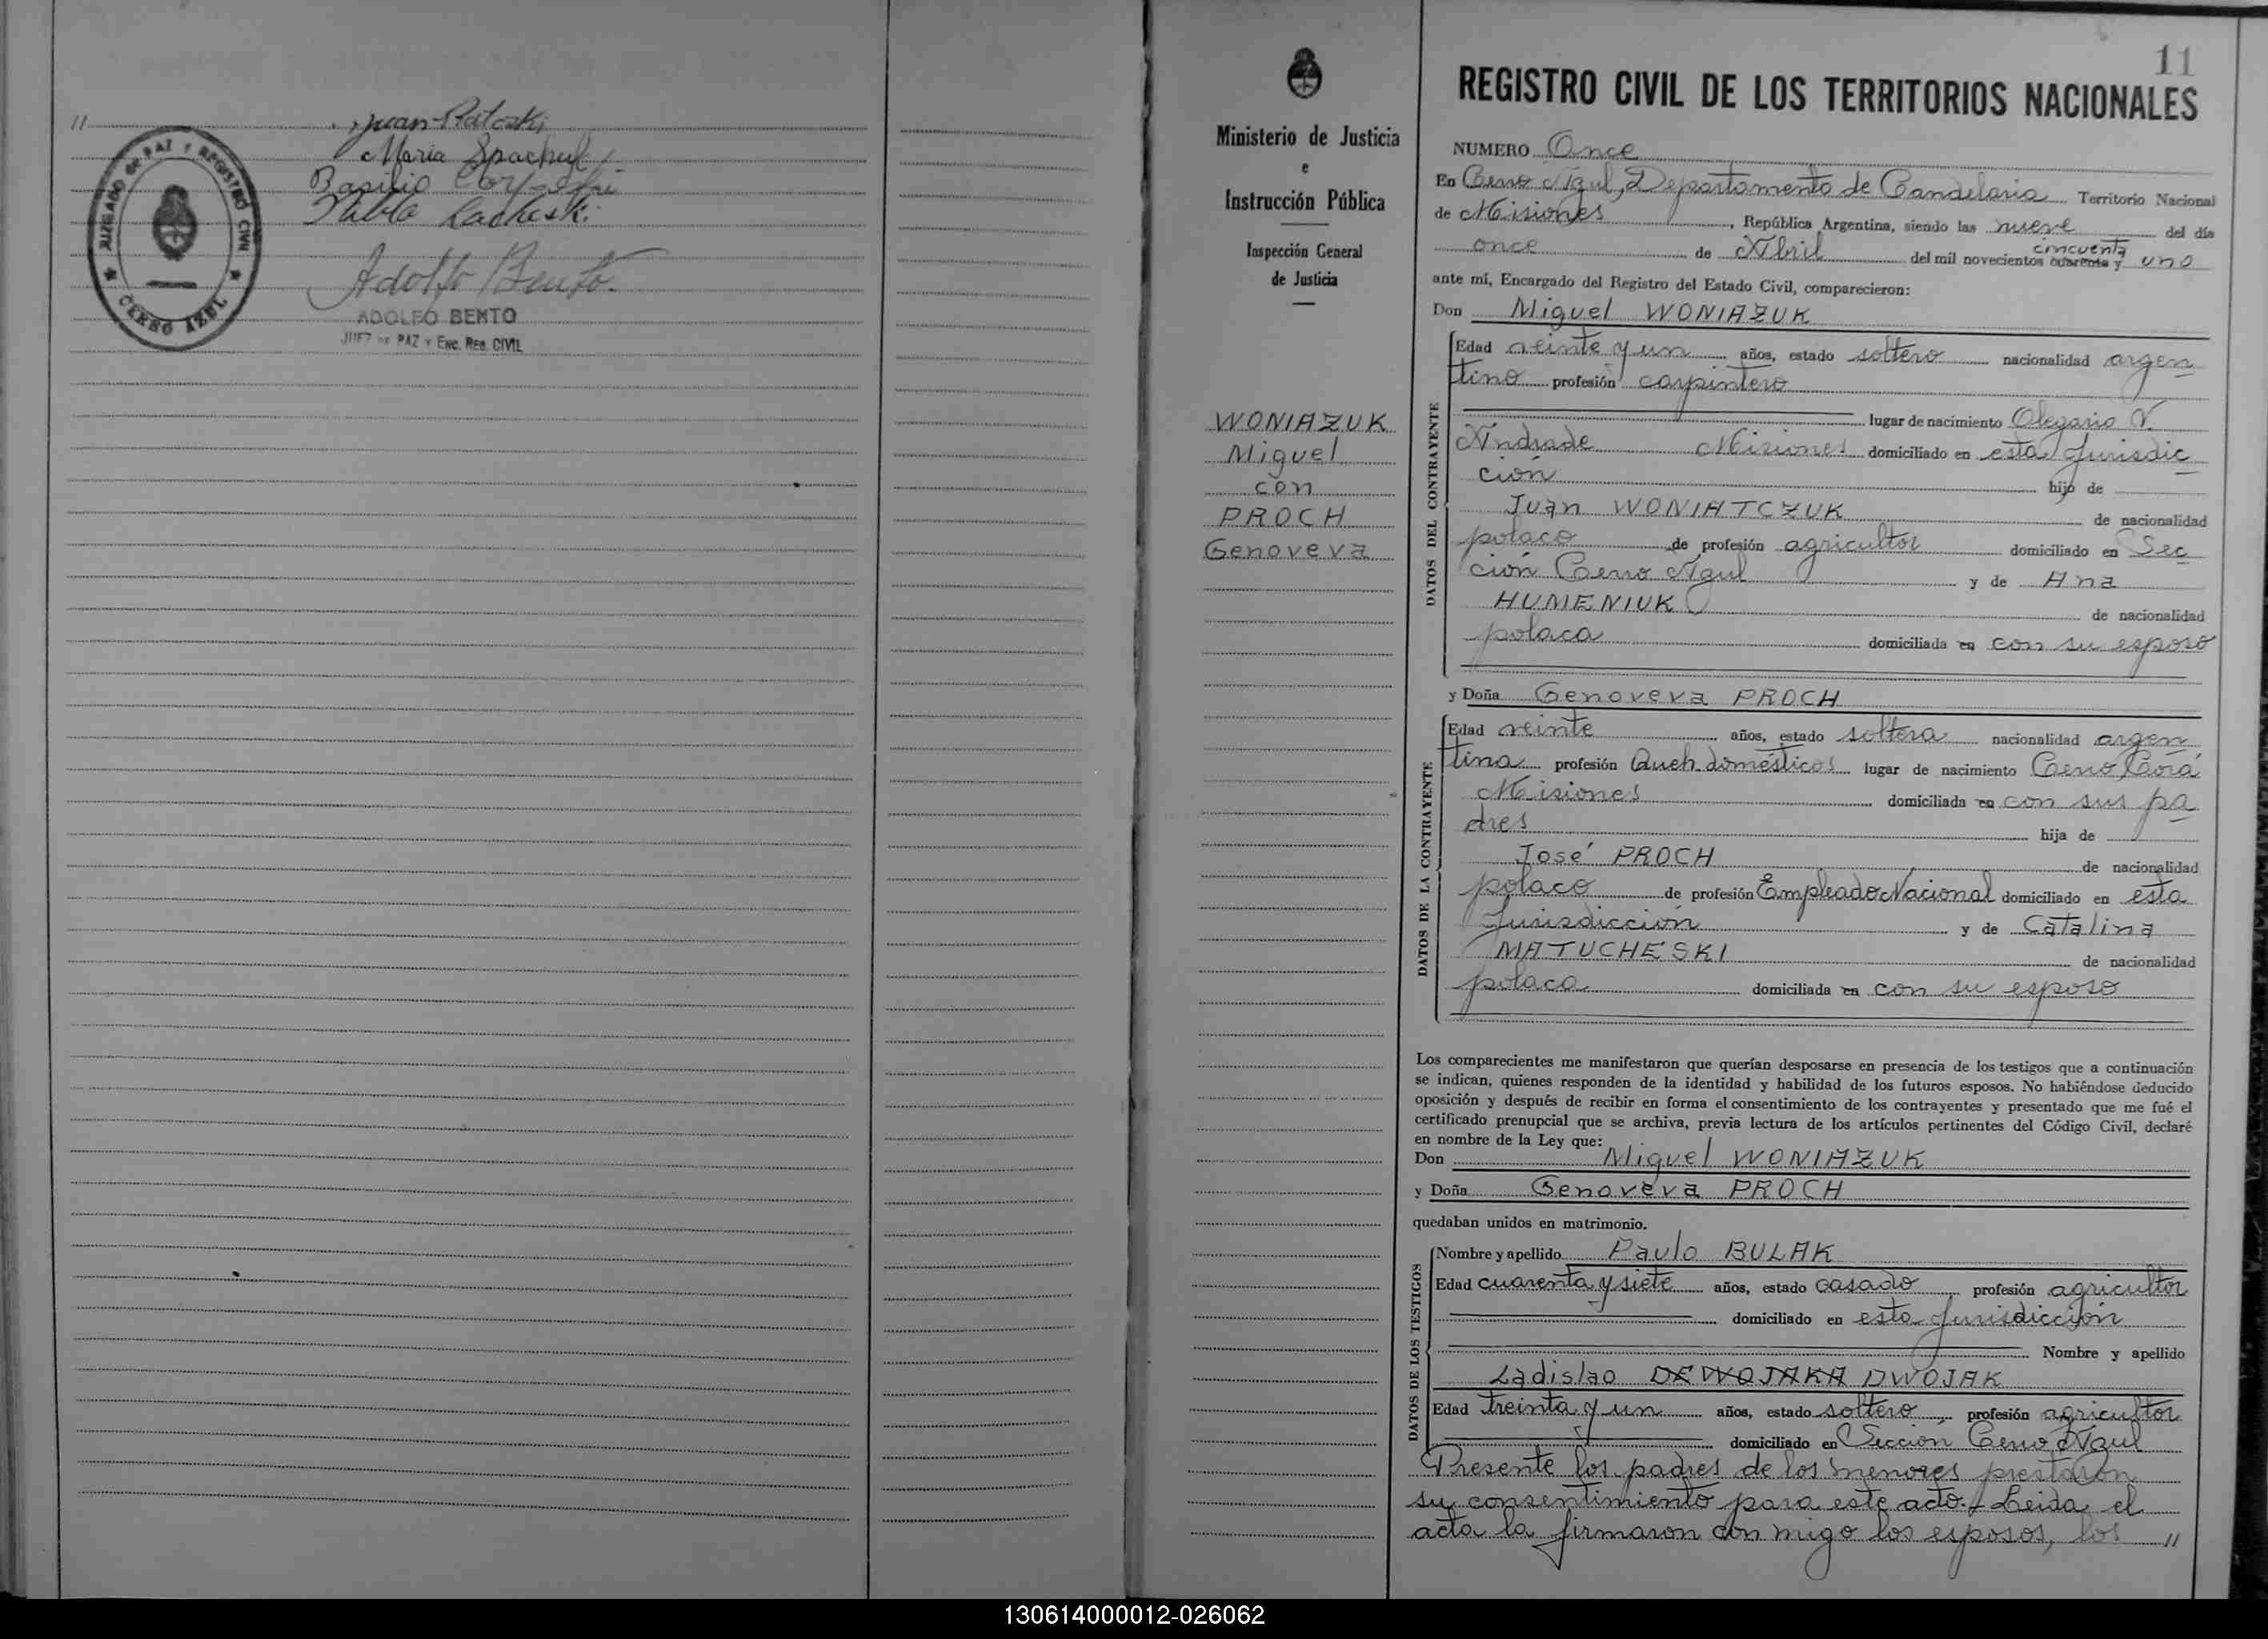 11
Juan Ratoski
Maria Spachuk
Basilio
Pablo Lacheski
Adolfo Bento
ADOLFO BENTO
JUEZ DE PAZ Y ENC. REG. CIVIL
JUZGADO DE PAZ Y REGISTRO CIVIL
CERRO AZUL
Ministerio de Justicia
e
Instrucción Pública
Inspección General
de Justicia
WONIAZUK
Miguel
con
PROCH
Genoveva
11
REGISTRO CIVIL DE LOS TERRITORIOS NACIONALES
NUMERO Once
En Cerro Azul, Departamento de Candelaria Territorio Nacional
de Misiones, República Argentina, siendo las nueve del día
once de Abril del mil novecientos cuarenta y cincuenta uno
ante mí, Encargado del Registro del Estado Civil, comparecieron:
Don Miguel WONIAZUK
DATOS DEL CONTRAYENTE
Edad veinte y un años, estado soltero nacionalidad argen
tino profesión carpintero
lugar de nacimiento Olegario V.
Andrade Misiones domiciliado en esta Jurisdic
ción hijo de
Juan WONIATCZUK de nacionalidad
polaco de profesión agricultor domiciliado en Sec
ción Cerro Azul y de Ana
HUMENIUK de nacionalidad
polaca domiciliada en con su esposo
y Doña Genoveva PROCH
DATOS DE LA CONTRAYENTE
Edad veinte años, estado soltera nacionalidad argen
tina profesión Queh. domésticos lugar de nacimiento Cerro Corá
Misiones domiciliada en con sus pa
dres hija de
José PROCH de nacionalidad
polaco de profesión Empleado Nacional domiciliado en esta
Jurisdicción y de Catalina
MATUCHESKI de nacionalidad
polaca domiciliada en con su esposo
Los comparecientes me manifestaron que querían desposarse en presencia de los testigos que a continuación
se indican, quienes responden de la identidad y habilidad de los futuros esposos. No habiéndose deducido
oposición y después de recibir en forma el consentimiento de los contrayentes y presentado que me fué el
certificado prenupcial que se archiva, previa lectura de los artículos pertinentes del Código Civil, declaré
en nombre de la Ley que:
Don Miguel WONIAZUK
y Doña Genoveva PROCH
quedaban unidos en matrimonio.
DATOS DE LOS TESTIGOS
Nombre y apellido Paulo BULAK
Edad cuarenta y siete años, estado casado profesión agricultor
domiciliado en esta Jurisdicción
Nombre y apellido
Ladislao DEWOJAKA DWOJAK
Edad treinta y un años, estado soltero, profesión agricultor
domiciliado en Sección Cerro Azul
Presente los padres de los menores prestaron
su consentimiento para este acto.- Leida el
acta la firmaron con migo los esposos, los 11
130614000012-026062